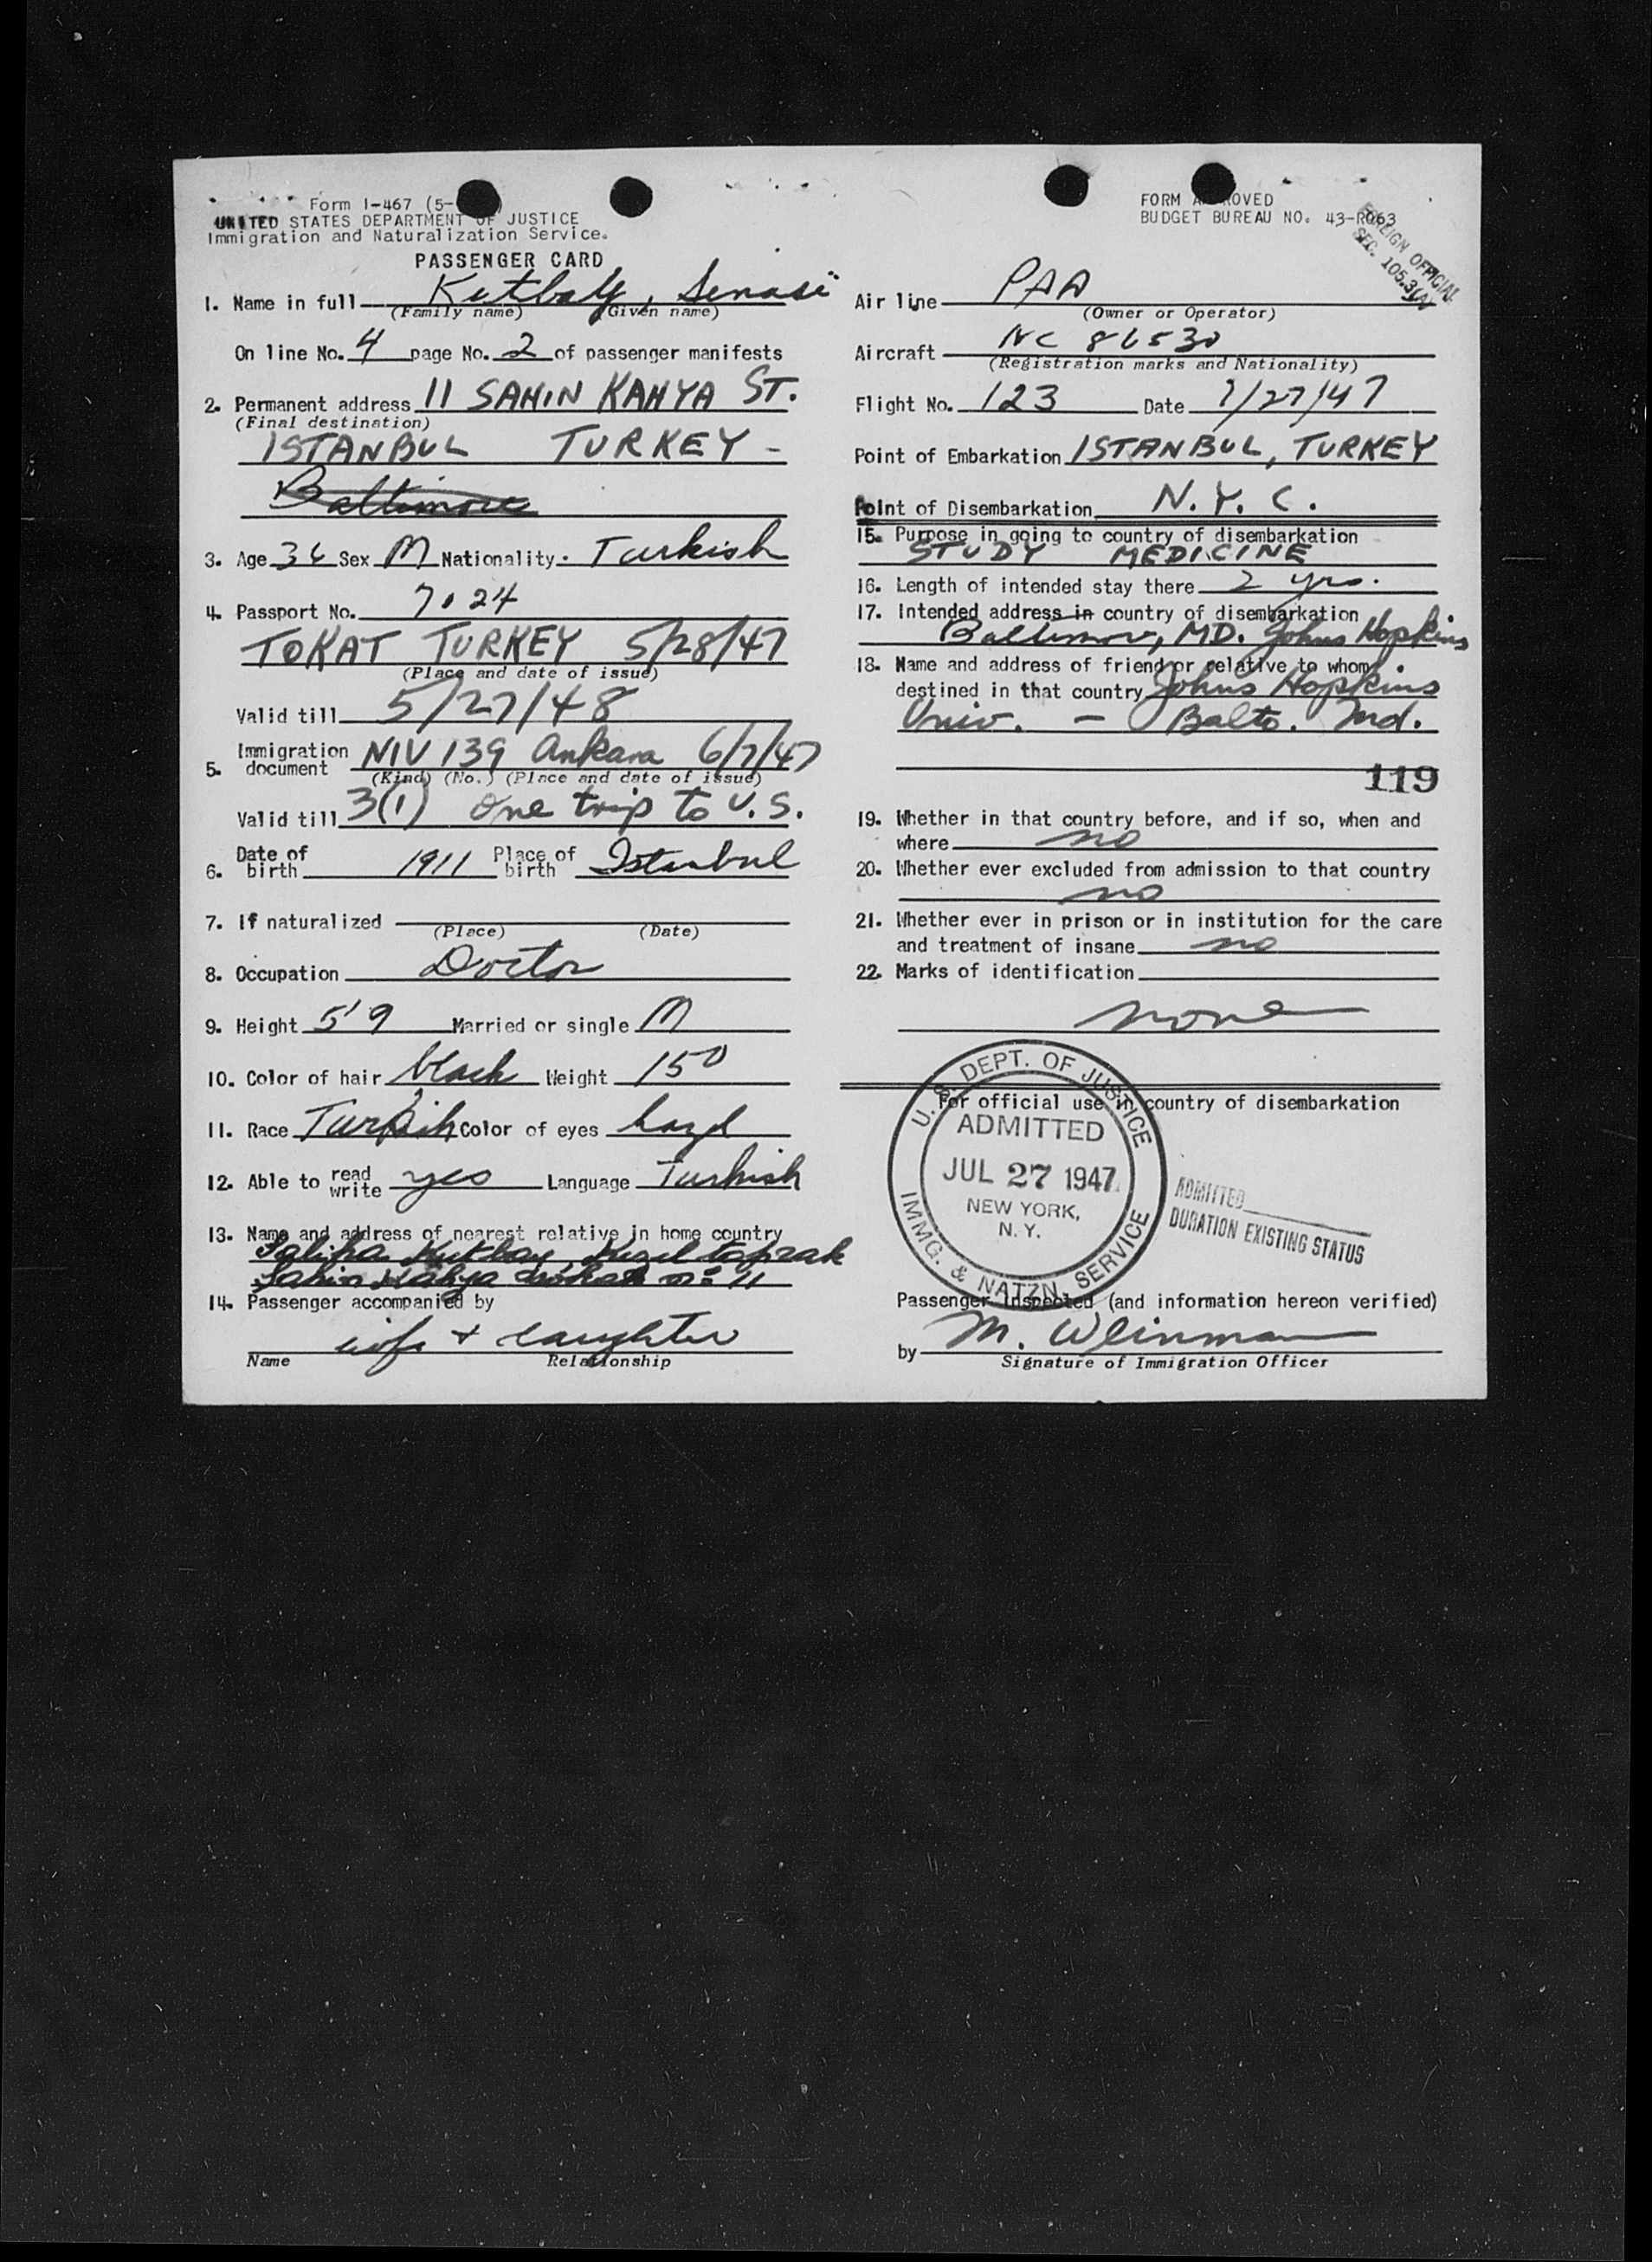 Form I-467 (5-
UNITED STATES DEPARTMENT OF JUSTICE
Immigration and Naturalization Service.
PASSENGER CARD
1. Name in full Kutbay, Senasi
(Family name) (Given name)
On line No. 4 page No. 2 of passenger manifests
2. Permanent address 11 SAHIN KAHYA ST.
(Final destination)
ISTANBUL TURKEY -
Baltimore
3. Age 36 Sex M Nationality. Turkish
4. Passport No. 7024
TOKAT TURKEY 5/28/47
(Place and date of issue)
Valid till 5/27/48
5. Immigration document NIV 139 Ankara 6/7/47
(Kind) (No.) (Place and date of issue)
Valid till 3(1) One trip to U.S.
6. Date of birth 1911 Place of birth Istanbul
7. If naturalized
(Place) (Date)
8. Occupation Doctor
9. Height 5'9 Married or single M
10. Color of hair black Weight 150
11. Race Turkish Color of eyes hazel
12. Able to read write yes Language Turkish
13. Name and address of nearest relative in home country
Saliha Kutbay, Kizil toprak
Sahin Kahya no: 11
14. Passenger accompanied by
wife + daughter
Name Relationship
FORM APPROVED
BUDGET BUREAU NO. 43-R063
FOREIGN OFFICIAL
SEC. 105.3(A)
Air line PAA
(Owner or Operator)
Aircraft NC 86530
(Registration marks and Nationality)
Flight No. 123 Date 7/27/47
Point of Embarkation ISTANBUL, TURKEY
Point of Disembarkation N.Y.C.
15. Purpose in going to country of disembarkation
STUDY MEDICINE
16. Length of intended stay there 2 yrs.
17. Intended address in country of disembarkation
Baltimore, MD. Johns Hopkins
18. Name and address of friend or relative to whom
destined in that country Johns Hopkins
Univ. - Balto. Md.
119
19. Whether in that country before, and if so, when and
where no
20. Whether ever excluded from admission to that country
no
21. Whether ever in prison or in institution for the care
and treatment of insane no
22. Marks of identification
none
For official use in country of disembarkation
U.S. DEPT. OF JUSTICE
ADMITTED
JUL 27 1947
NEW YORK,
N. Y.
IMMG. & NATZN. SERVICE
ADMITTED
DURATION EXISTING STATUS
Passenger Inspected (and information hereon verified)
by M. Weinman
Signature of Immigration Officer